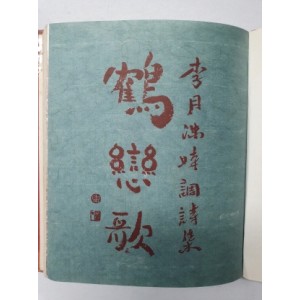 李月洙時調詩集
鶴戀歌